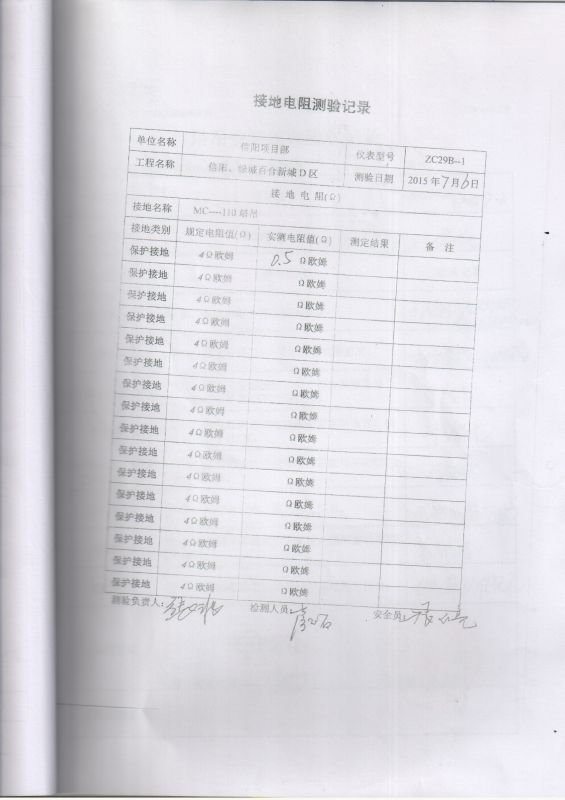 接地电阻测验记录
单位名称 信阳项目部 仪表型号 ZC29B--1
工程名称 信阳、绿城百合新城D区 测验日期 2015年7月6日
接 地 电 阻(Ω)
接地名称 MC----110塔吊
接地类别 规定电阻值(Ω) 实测电阻值(Ω) 测定结果 备 注
保护接地 4Ω欧姆 0.5 Ω欧姆
保护接地 4Ω欧姆 Ω欧姆
保护接地 4Ω欧姆 Ω欧姆
保护接地 4Ω欧姆 Ω欧姆
保护接地 4Ω欧姆 Ω欧姆
保护接地 4Ω欧姆 Ω欧姆
保护接地 4Ω欧姆 Ω欧姆
保护接地 4Ω欧姆 Ω欧姆
保护接地 4Ω欧姆 Ω欧姆
保护接地 4Ω欧姆 Ω欧姆
保护接地 4Ω欧姆 Ω欧姆
保护接地 4Ω欧姆 Ω欧姆
保护接地 4Ω欧姆 Ω欧姆
保护接地 4Ω欧姆 Ω欧姆
保护接地 4Ω欧姆 Ω欧姆
保护接地 4Ω欧姆 Ω欧姆
测验负责人： 检测人员： 安全员：